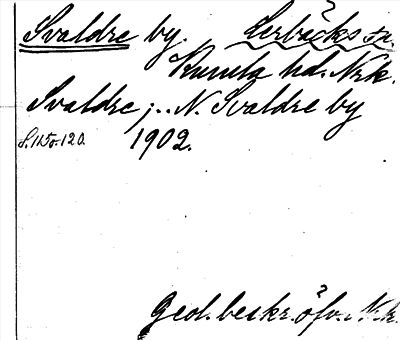 Svaldre by. Lerbäcks sn.
Kumla hd. Nrk.
Svaldre; .. N. Svaldre by
S. 115 o. 120. 1902.
Geol. beskr. öfv. Nrk.